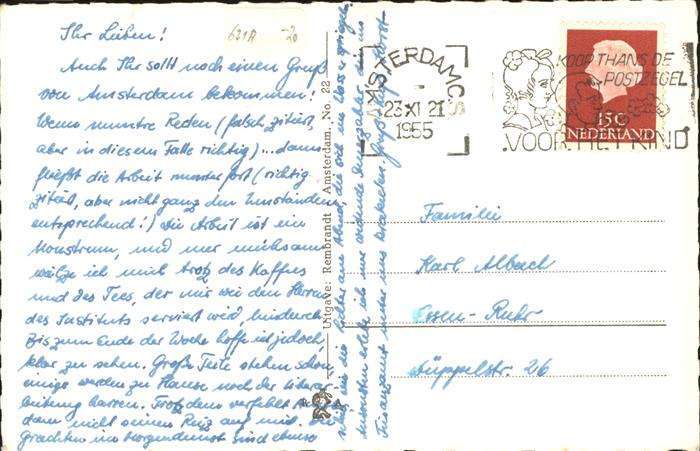 Ihr Lieben!
Auch Ihr sollt noch einen Gruß
von Amsterdam bekommen!
Wenn muntre Reden (falsch zitiert,
aber in diesem Falle richtig)... dann
fließt die Arbeit munter fort (richtig
zitiert, aber nicht ganz den Umständen
entsprechend!) die Arbeit ist ein
Monstrum, und nur mühsam
wälze ich mich trotz des Kaffees
und des Tees, der mir wie den Herren
des Instituts serviert wird, hindurch.
Bis zum Ende der Woche hoffe ich jedoch
klar zu sehen. Große Teile stehen schon,
einige werden zu Hause noch der
harren. Trotzdem verfehlt
dam nicht seinen Reiz auf mich. Die
Grachten im Morgendunst sind ebenso
schön, wie die Lichter am Abend, die sich im Wasser spiegeln.
Ansonsten erlebe ich
Finanzamt Gruß Horst
621A 20
Uitgave: Rembrandt Amsterdam, No. 22
AMSTERDAM C.S
23 XI 21
1955
KOOP THANS DE
POSTZEGEL
VOOR HET KIND
15C
NEDERLAND
Familie
Karl Albach
Essen-Ruhr
Düppelstr. 26